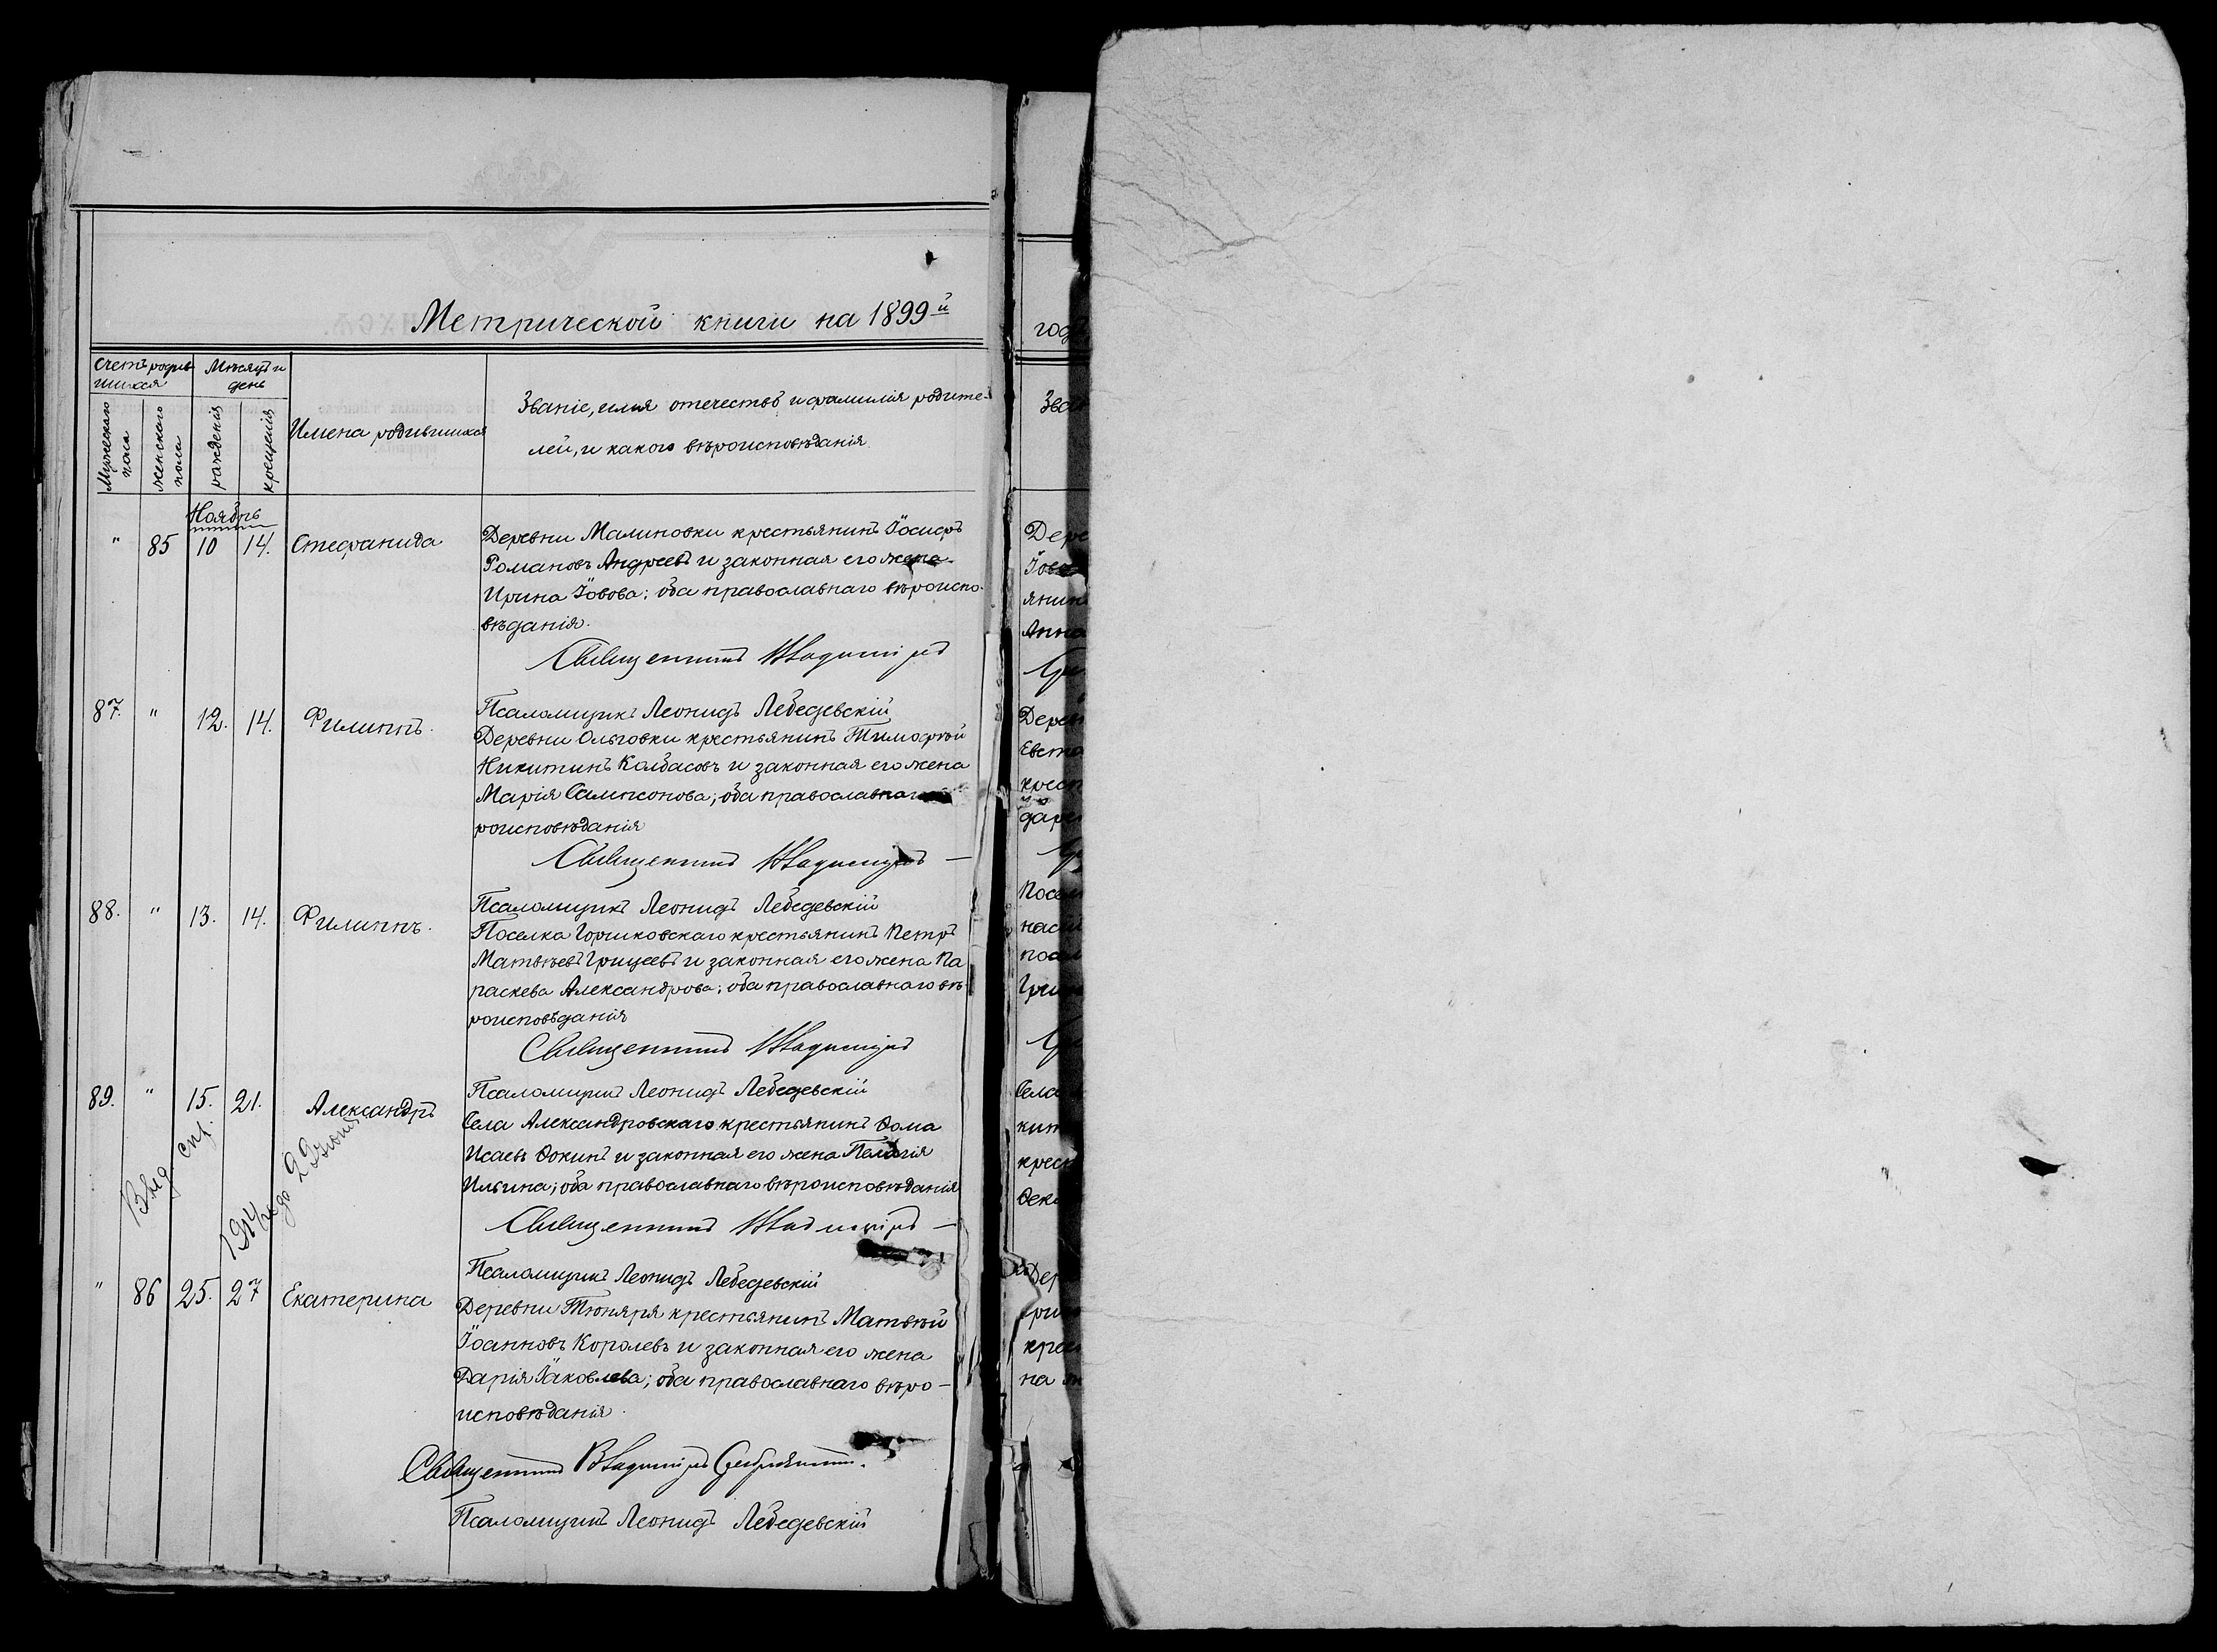 Метрической книги на 1899й
Счетъ родив-
шихся
Мѣсяцъ и
день
Мужескаго
пола
женскаго
пола
рожденія
крещенія
Имена родившихся
Званіе, имя отчество и фамилія родите-
лей, и какого вѣроисповѣданія
год
Зва
Ноябрь
" 85 10 14. Стефанида
Деревни Малиновки крестьянинъ Іосифъ
Романовъ Андреевъ и законная его жена
Ирина Іовова; оба православнаго вѣроиспо-
вѣданія.
Священникъ Владиміръ
Псаломщикъ Леонидъ Лебедевскій
87. " 12. 14. Филиппъ.
Деревни Ольговки крестьянинъ Тимофей
Никитинъ Колбасовъ и законная его жена
Марія Сампсонова; оба православнаго
роисповѣданія
Священникъ Владиміръ —
Псаломщикъ Леонидъ Лебедевскій
88. " 13. 14. Филиппъ.
Поселка Горшковскаго крестьянинъ Петръ
Матвѣевъ Грицеевъ и законная его жена Па
раскева Александрова; оба православнаго вѣ-
роисповѣданія
Священникъ Владиміръ
Псаломщикъ Леонидъ Лебедевскій
89. " 15. 21. Александръ
Села Александровскаго крестьянинъ Ѳома
Исаевъ Ѳокинъ и законная его жена Пелагія
Ильина; оба православнаго вѣроисповѣданія
Священникъ Владиміръ —
Выд. спр.
1914 года 22 іюня
Псаломщикъ Леонидъ Лебедевскій
" 86 25. 27 Екатерина
Деревни Тюняря крестьянинъ Матвѣй
Іоанновъ Королевъ и законная его жена
Дарія Іаковлева; оба православнаго вѣро-
исповѣданія.
Священникъ Владиміръ
Псаломщикъ Леонидъ Лебедевскій
Дере
Іова
янин
Анна
Дерев
Евста
крест
даре
Посел
наси
посел
Гри
Села
кит
крест
Ѳек
Дер
гри
крес
на